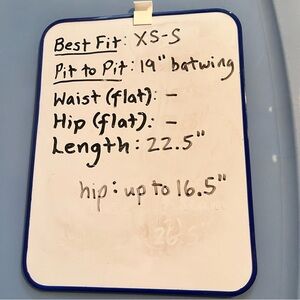 Best Fit: XS-S
Pit to Pit: 19" batwing
Waist (flat): -
Hip (flat): -
Length: 22.5"
hip: up to 16.5"